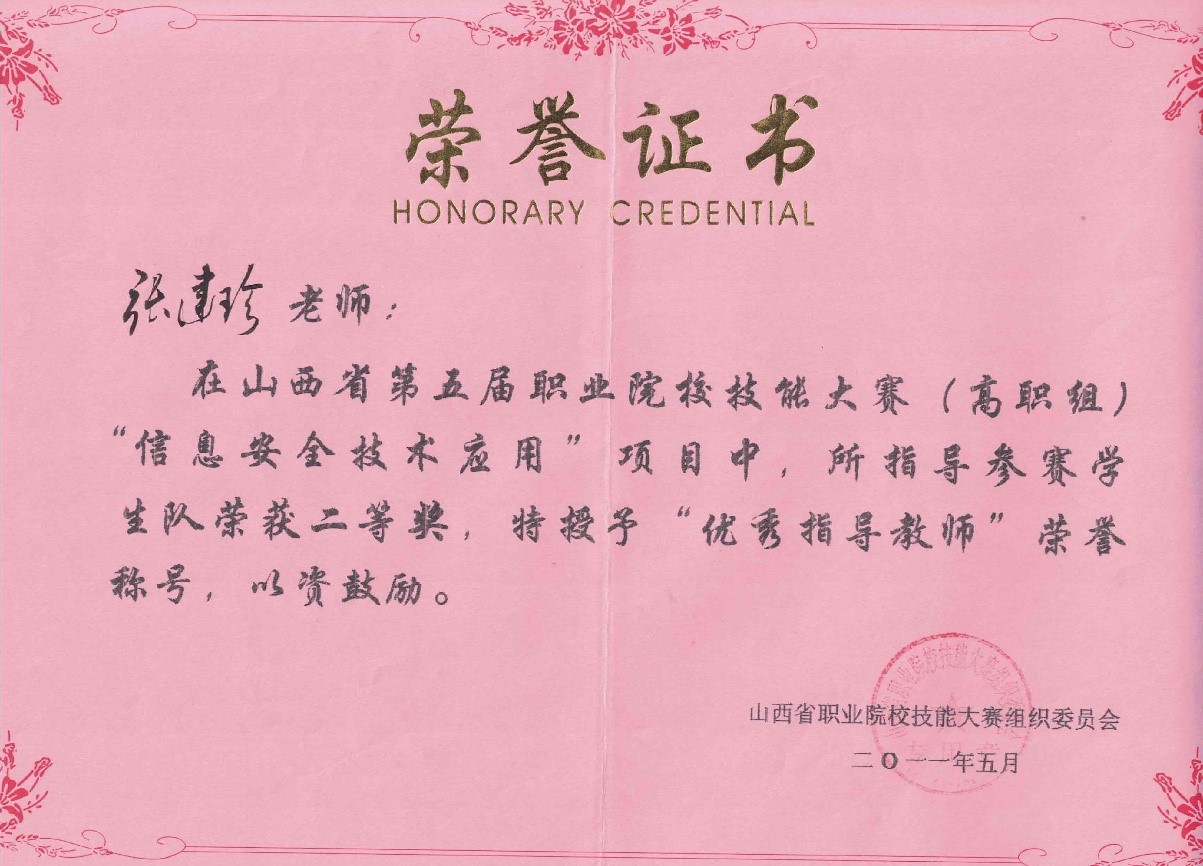 荣誉证书
HONORARY CREDENTIAL
张建珍 老师：
在山西省第五届职业院校技能大赛（高职组）
“信息安全技术应用”项目中，所指导参赛学
生队荣获二等奖，特授予“优秀指导教师”荣誉
称号，以资鼓励。
山西省职业院校技能大赛组织委员会
二〇一一年五月